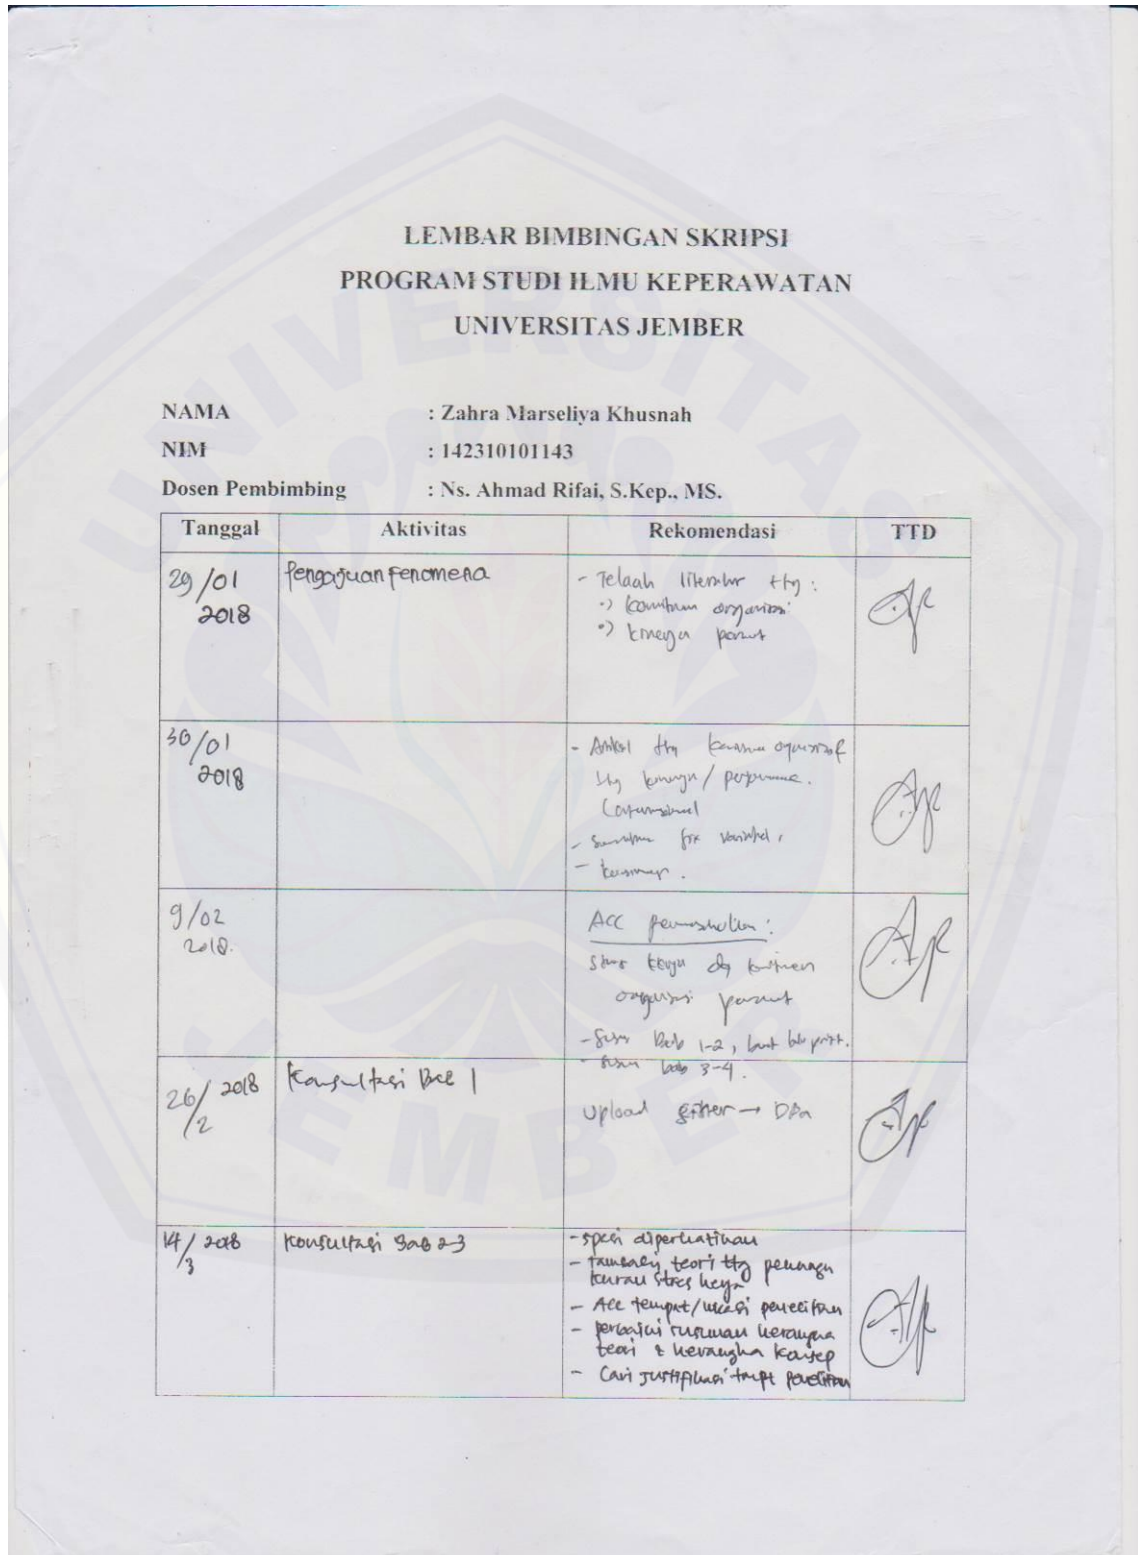 LEMBAR BIMBINGAN SKRIPSI
PROGRAM STUDI ILMU KEPERAWATAN
UNIVERSITAS JEMBER
NAMA : Zahra Marseliya Khusnah
NIM : 142310101143
Dosen Pembimbing : Ns. Ahmad Rifai, S.Kep., MS.
Tanggal Aktivitas Rekomendasi TTD
29/01 2018 Pengajuan fenomena
- Telaah literatur ttg :
•) organisasi
•) kinerja perawat
30/01 2018
- Artikel ttg
ttg kinerja /
- fix variabel
-
9/02 2018.
ACC :
kerja dg komitmen
organisasi perawat
- Susun Bab 1-2, buat blue print.
- Susun bab 3-4.
26/2 2018 Konsultasi Bab 1
Upload → DPA
14/3 2018 Konsultasi Bab 2-3
- spasi diperhatikan
- teori ttg
stres kerja
- Acc tempat/lokasi penelitian
- perbaiki susunan kerangka
teori & kerangka konsep
- Cari justifikasi penelitian
UNIVERSITAS JEMBER